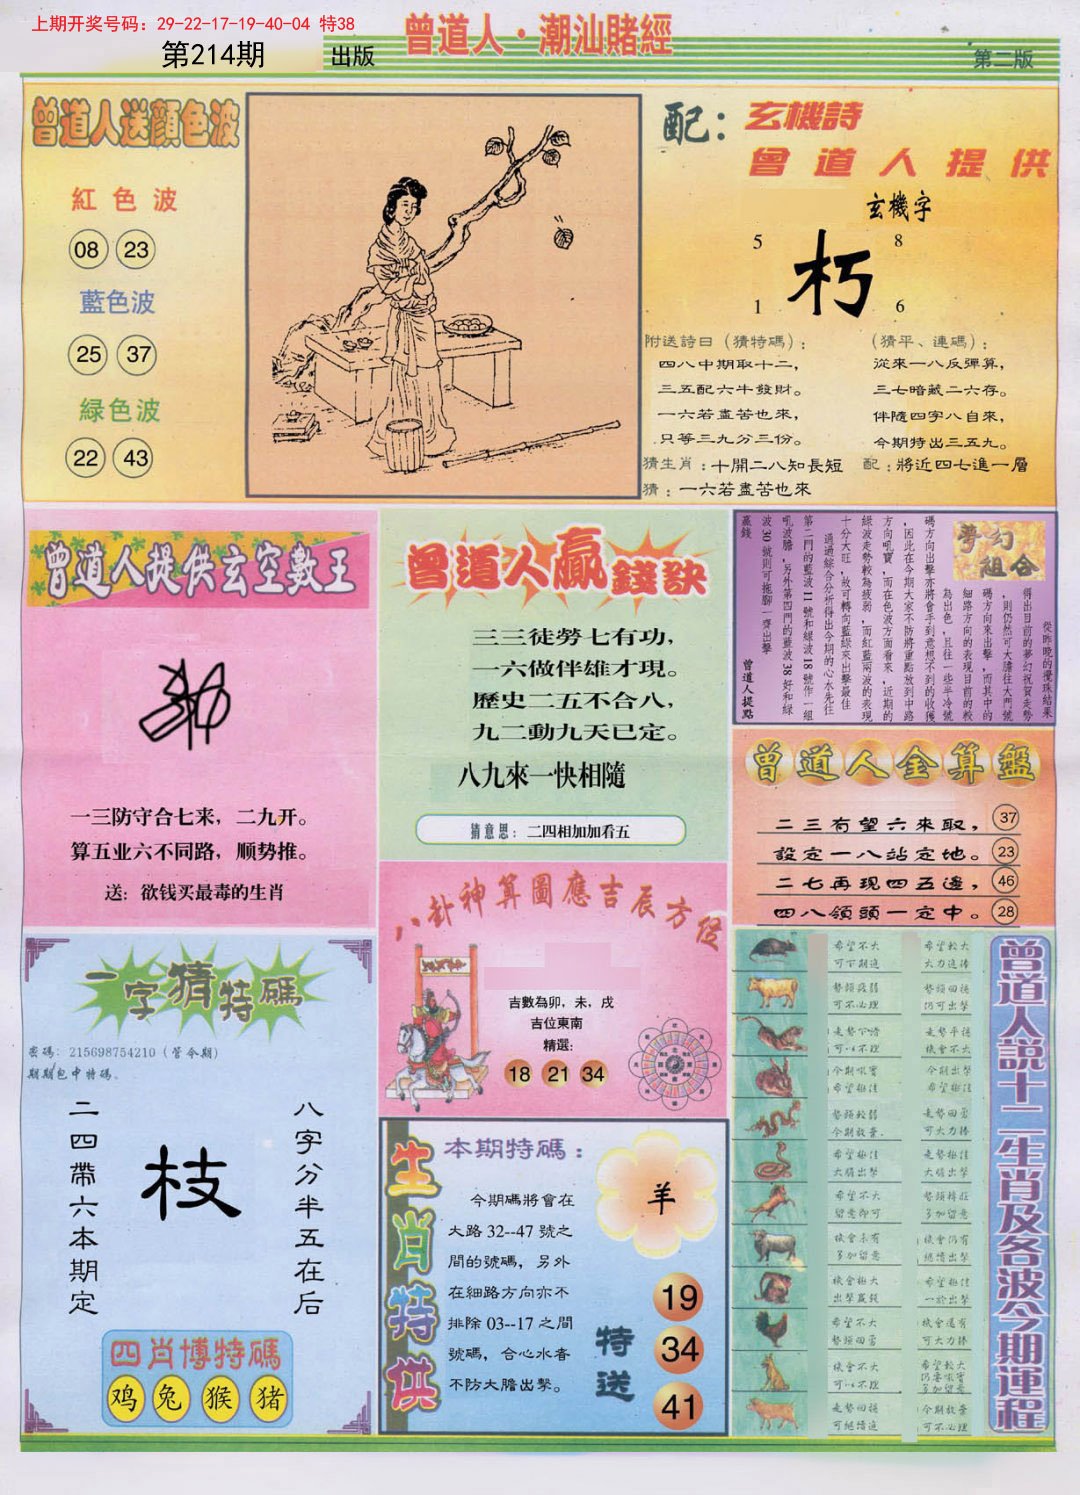 上期开奖号码：29-22-17-19-40-04 特38
第214期 出版
曾道人·潮汕賭經
第二版
曾道人送顔色波
紅色波
08 23
藍色波
25 37
緑色波
22 43
配：玄機詩
曾道人提供
玄機字
5 8
朽
1 6
附送詩曰（猜特碼）：
四八中期取十二，
三五配六牛發財。
一六若盡苦也來，
只等三九分三份。
（猜平、連碼）：
從來一八反彈算，
三七暗藏二六存。
伴隨四字八自來，
今期特出三五九。
猜生肖：十開二八知長短 配：將近四七進一層
猜：一六若盡苦也來
曾道人提供玄空數王
一三防守合七来，二九开。
算五业六不同路，顺势推。
送：欲钱买最毒的生肖
曾道人贏錢訣
三三徒勞七有功，
一六做伴雄才現。
歷史二五不合八，
九二動九天已定。
八九來一快相隨
猜意思：二四相加加看五
夢幻組合
從昨晚的攪珠結果
得出目前的夢幻祝賀走勢
，則仍然可大膽往大門號
碼方向來出擊，而其中的
細路方向的表現目前的較
為出色，且往一些半冷號
碼方向出擊亦將會手到意想不到的收獲
，因此在今期大家不防將重點放到中路
方向吼寶，而在色波方面看來，近期的
綠波走勢較為疲弱，而紅藍兩波的表現
十分大旺，故可轉向藍綠來出擊最佳
通過綜合分析得出今期的心水先往
第二門的藍波11號和綠波18號作一組
吼波膽，另外第四門的藍波38好和綠
波30號則可拖腳一齊出擊
贏錢
曾道人提點
曾道人金算盤
二三有望六來取， 37
設定一八站定地。 23
二七再現四五邊， 46
四八領頭一定中。 28
八卦神算圖應吉辰方位
吉數為卯，未，戌
吉位東南
精選：
18 21 34
一字猜特碼
密碼：215698754210（管今期）
期期包中特碼。
二四帶六本期定
枝
八字分半五在后
四肖博特碼
鸡 兔 猴 猪
生肖特供
本期特碼：
今期碼將會在
大路 32--47 號之
間的號碼，另外
在細路方向亦不
排除 03--17 之間
號碼，合心水者
不防大膽出擊。
羊
特送
19
34
41
曾道人說十二生肖及各波今期運程
希望不大 希望較大
可下期追 大力追捧
勢頭疲弱 勢頭回揚
可不必理 仍可出擊
走勢平穩
機會不大
今期吼寶 今期出擊
希望極佳 希望極佳
勢頭較弱 走勢回勇
今期放棄 可大力捧
走勢極佳 走勢極佳
大膽出擊 大膽出擊
希望不大 勢頭持旺
留意即可 多加留意
機會未有 機會仍有
多加留意 繼續出擊
機會極大 希望極佳
出擊贏錢 一於出擊
希望不大 機會還有
勢頭回勇 可大力捧
機會不大 希望較大
多加留意
走勢回揚 今期放棄
可繼續追 可不必理